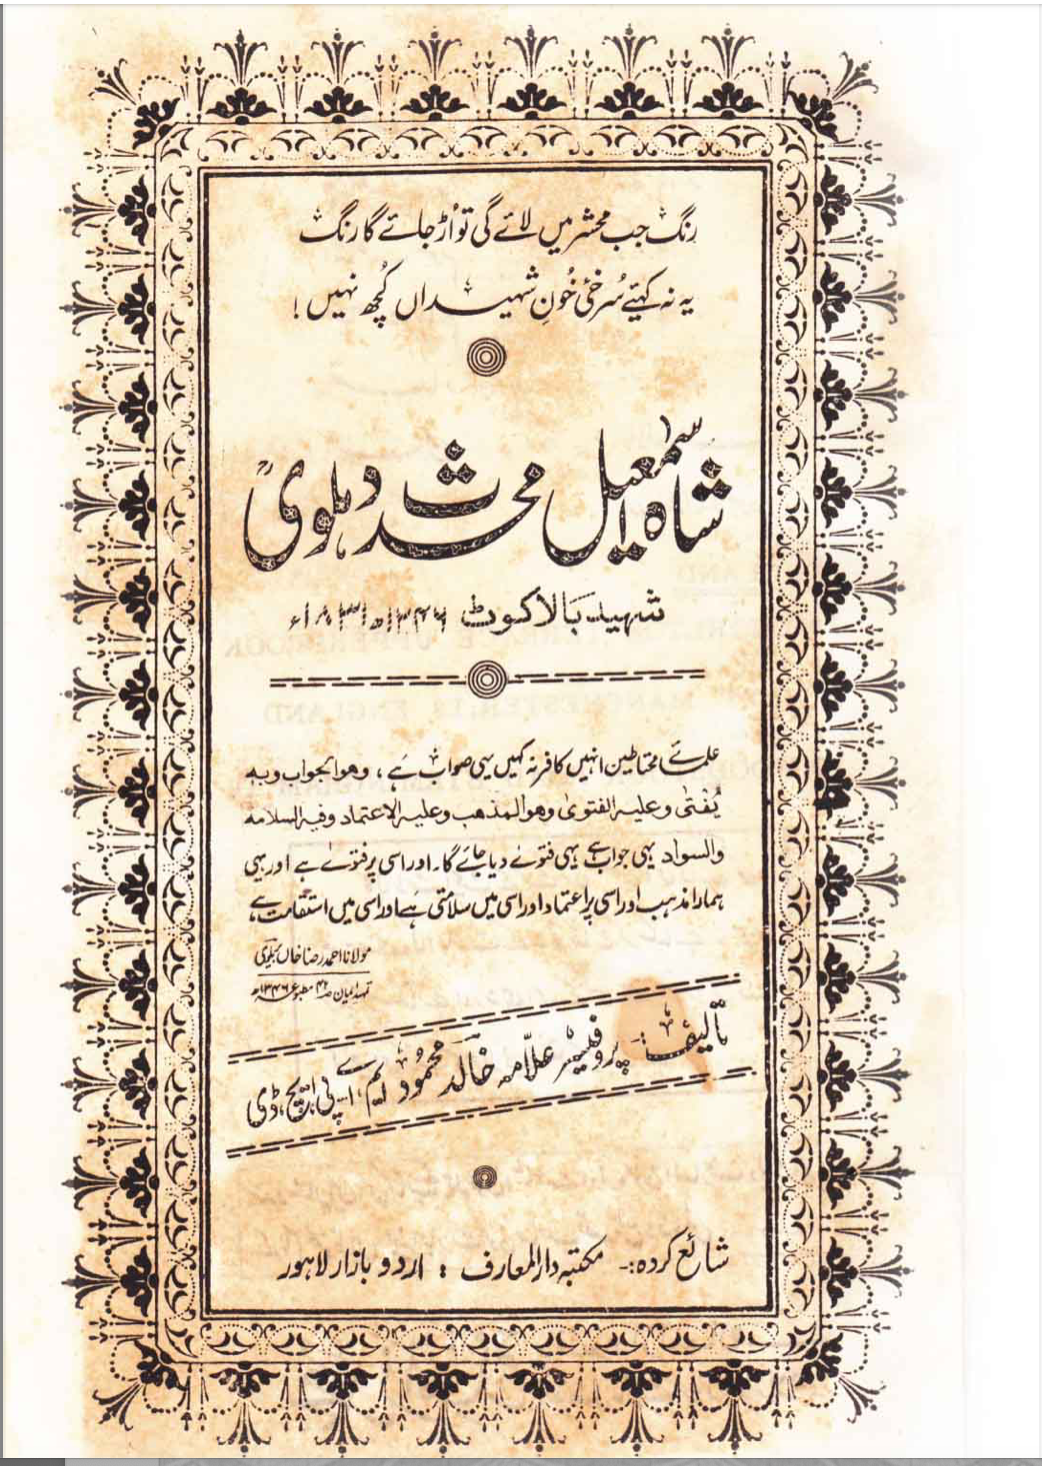 رنگ جب محشر میں لائے گی تو اُڑ جائے گا رنگ
یہ نہ کہئے سُرخئ خُونِ شہیداں کُچھ نہیں !
شاہ اسمٰعیل محدث دہلویؒ
شہید بالاکوٹ ۱۲۴۶ھ ۱۸۳۱ء
علمائے محتاطین انہیں کافر نہ کہیں یہی صواب ہے ، وھو الجواب وبہ
یُفتٰی وعلیہ الفتویٰ وھو المذھب وعلیہ الاعتماد وفیہ السلامۃ
والسواد یہی جواب ہے یہی فتوےٰ دیا جائے گا۔ اور اسی پر فتوےٰ ہے اور یہی
ہمارا مذہب اور اسی پر اعتماد اور اسی میں سلامتی ہے اور اسی میں استقامت ہے
مولانا احمد رضا خاں بریلوی
تمہید ایمان ص۴۲ مطبوعہ
تالیف :- پروفیسر علّامہ خالد محمُود ایم اے، پی ایچ ڈی
شائع کردہ :- مکتبہ دار المعارف : اردو بازار لاہور